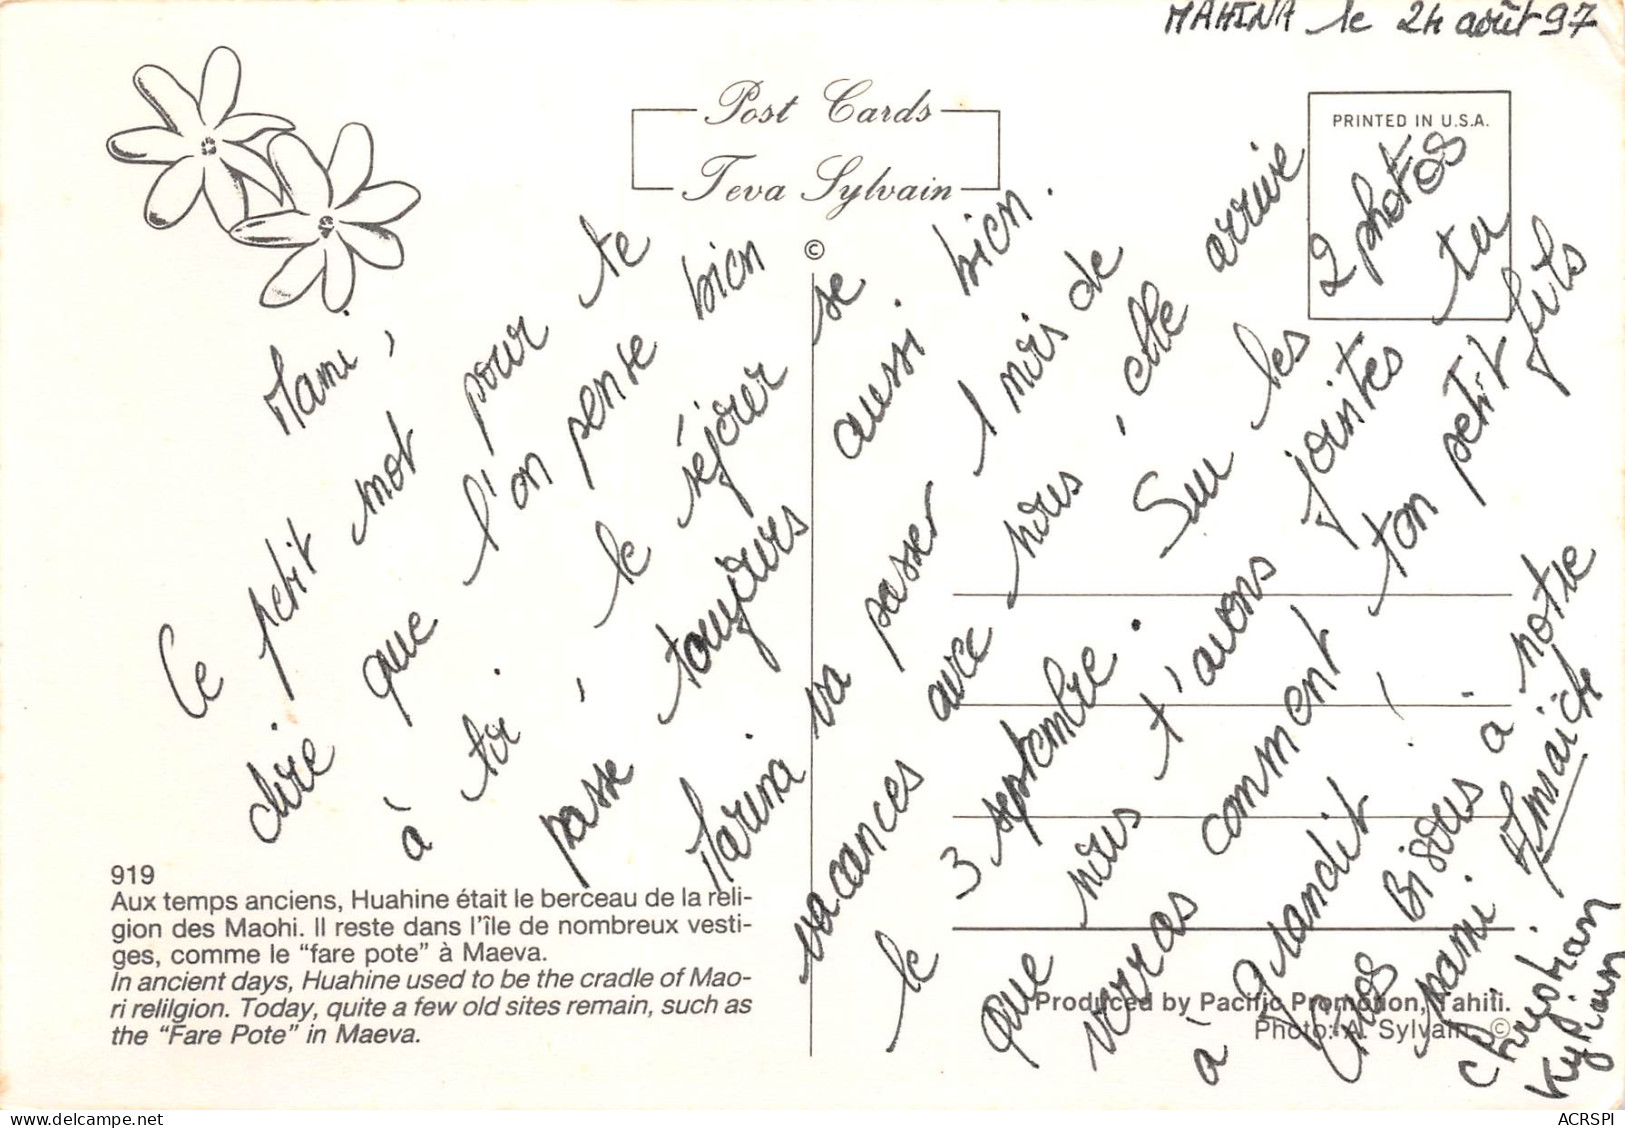 MAHINA le 24 août 97
Post Cards
Teva Sylvain
©
PRINTED IN U.S.A.
Mami,
Ce petit mot pour te
dire que l'on pense bien
à toi, le séjour se
passe toujours aussi bien.
Marina va passer 1 mois de
vacances avec nous, elle arrive
le 3 septembre. Sur les 2 photos
que nous t'avons jointes tu
verras comment ton petit fils
à grandit !
Gros Bisous à notre
mami.
Christian
Kylian
919
Aux temps anciens, Huahine était le berceau de la reli-
gion des Maohi. Il reste dans l'île de nombreux vesti-
ges, comme le “fare pote” à Maeva.
In ancient days, Huahine used to be the cradle of Mao-
ri relilgion. Today, quite a few old sites remain, such as
the “Fare Pote” in Maeva.
Produced by Pacific Promotion, Tahiti.
Photo: A. Sylvain ©
ACRSPI